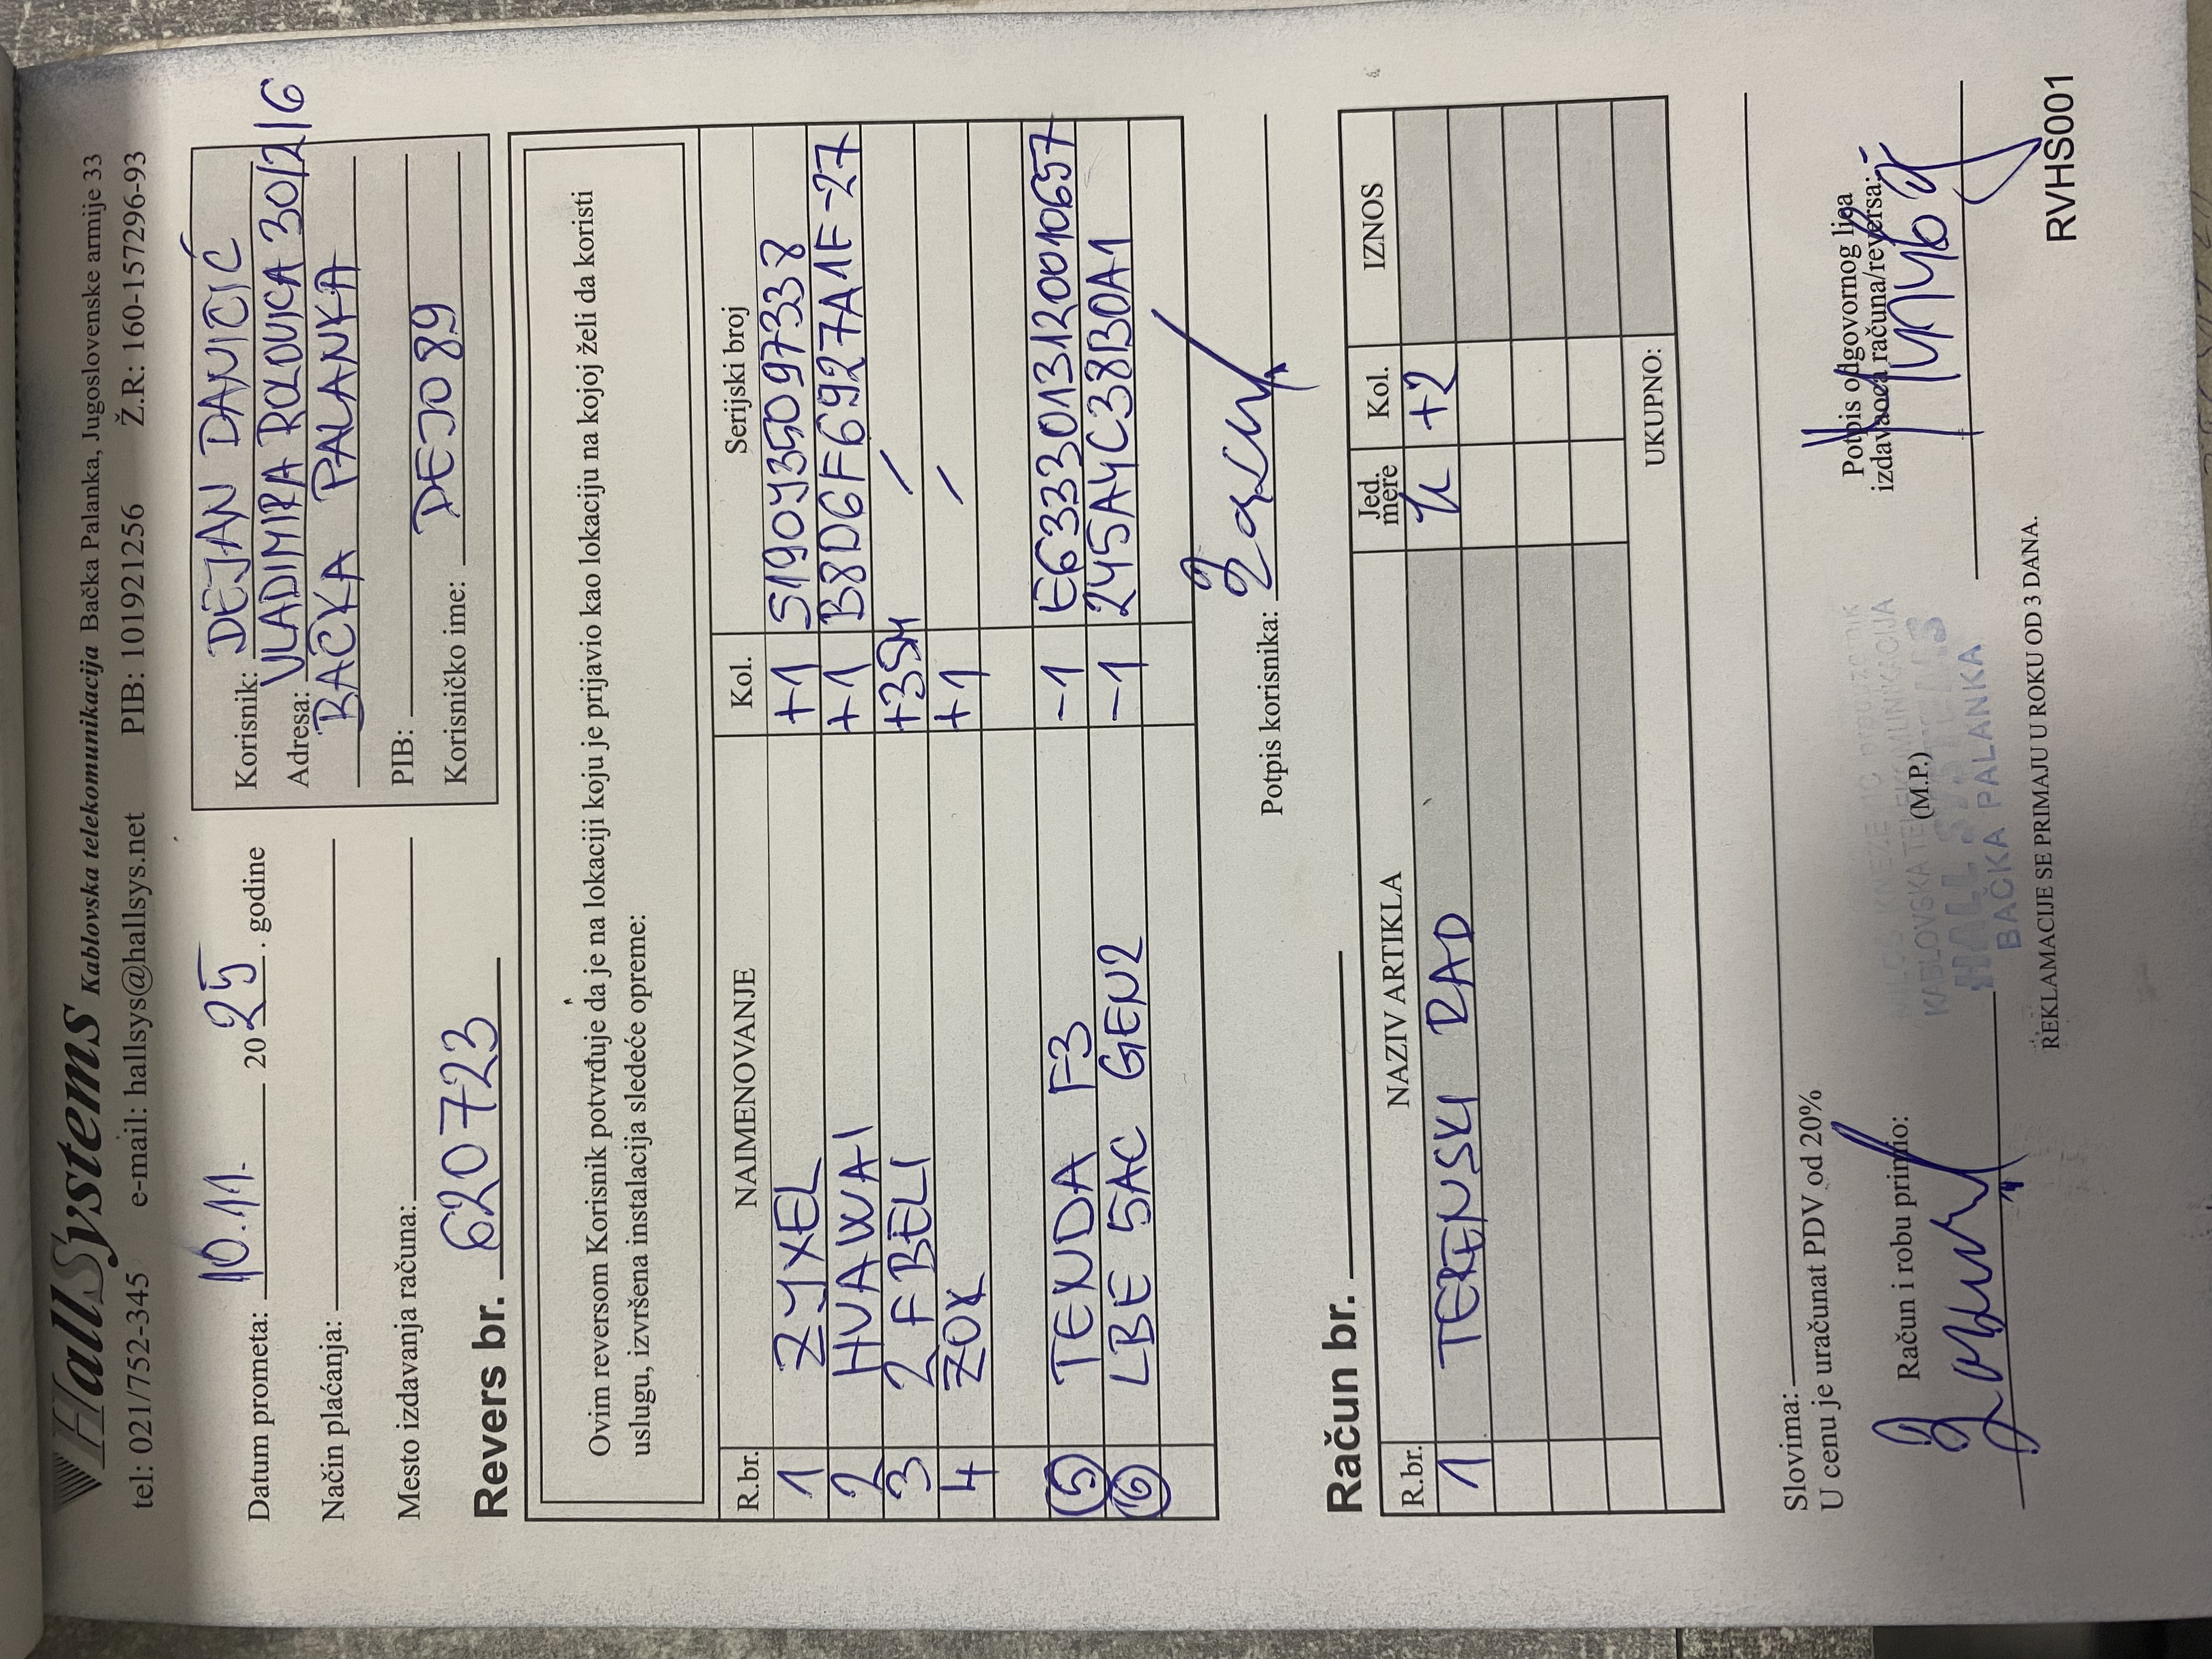 HallSystems Kablovska telekomunikacija Bačka Palanka, Jugoslovenske armije 33
tel: 021/752-345 e-mail: hallsys@hallsys.net PIB: 101921256 Ž.R: 160-157296-93
Datum prometa: 10.11. 2025. godine
Način plaćanja:
Mesto izdavanja računa:
Korisnik: DEJAN DANIČIĆ
Adresa: VLADIMIRA ROLOVIĆA 30/2/6
BAČKA PALANKA
PIB:
Korisničko ime: DEJO89
Revers br. 620723
Ovim reversom Korisnik potvrđuje da je na lokaciji koju je prijavio kao lokaciju na kojoj želi da koristi
uslugu, izvršena instalacija sledeće opreme:
R.br. NAIMENOVANJE Kol. Serijski broj
1 ZYXEL +1 S190Y35097338
2 HUAWAI +1 B8D6F6927A1F-27
3 2 F BELI +35M /
4 ZOK +1 /
5 TENDA F3 -1 E6333013120010657
6 LBE 5AC GEN2 -1 245A4C38B0A1
Potpis korisnika:
Račun br.
R.br. NAZIV ARTIKLA Jed. mere Kol. IZNOS
1 TERENSKI RAD h +2
UKUPNO:
Slovima:
U cenu je uračunat PDV od 20%
Račun i robu primio:
(M.P.)
KABLOVSKA TELEKOMUNIKACIJA
HALL SYSTEMS
BAČKA PALANKA
Potpis odgovornog lica
izdavaoca računa/reversa:
REKLAMACIJE SE PRIMAJU U ROKU OD 3 DANA.
RVHS001